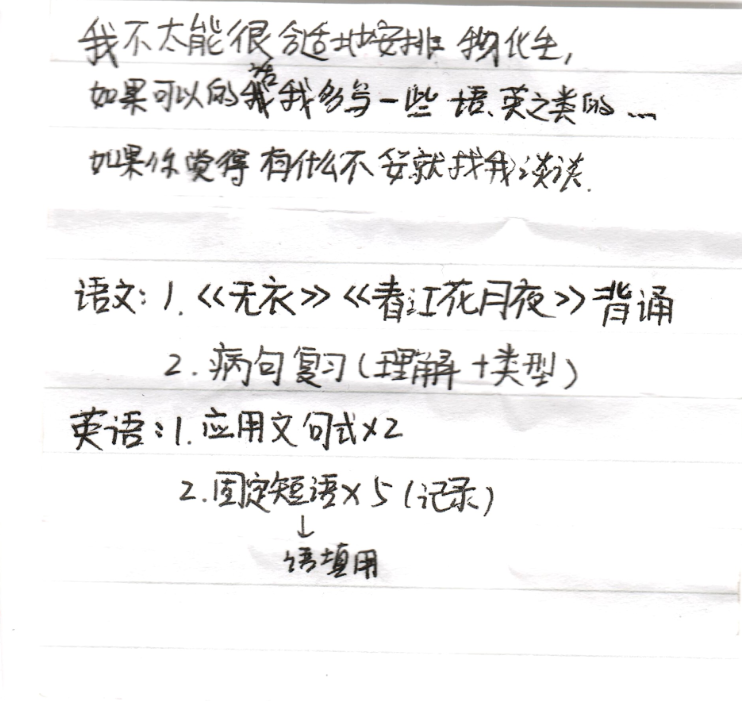 我不太能很合适地安排物化生,
如果可以的话我多写一些语、英之类的...
如果你觉得有什么不妥就找我谈谈.
语文:1.《无衣》《春江花月夜》背诵
2.病句复习(理解+类型)
英语:1.应用文句式×2
2.固定短语×5(记录)
↓
语填用